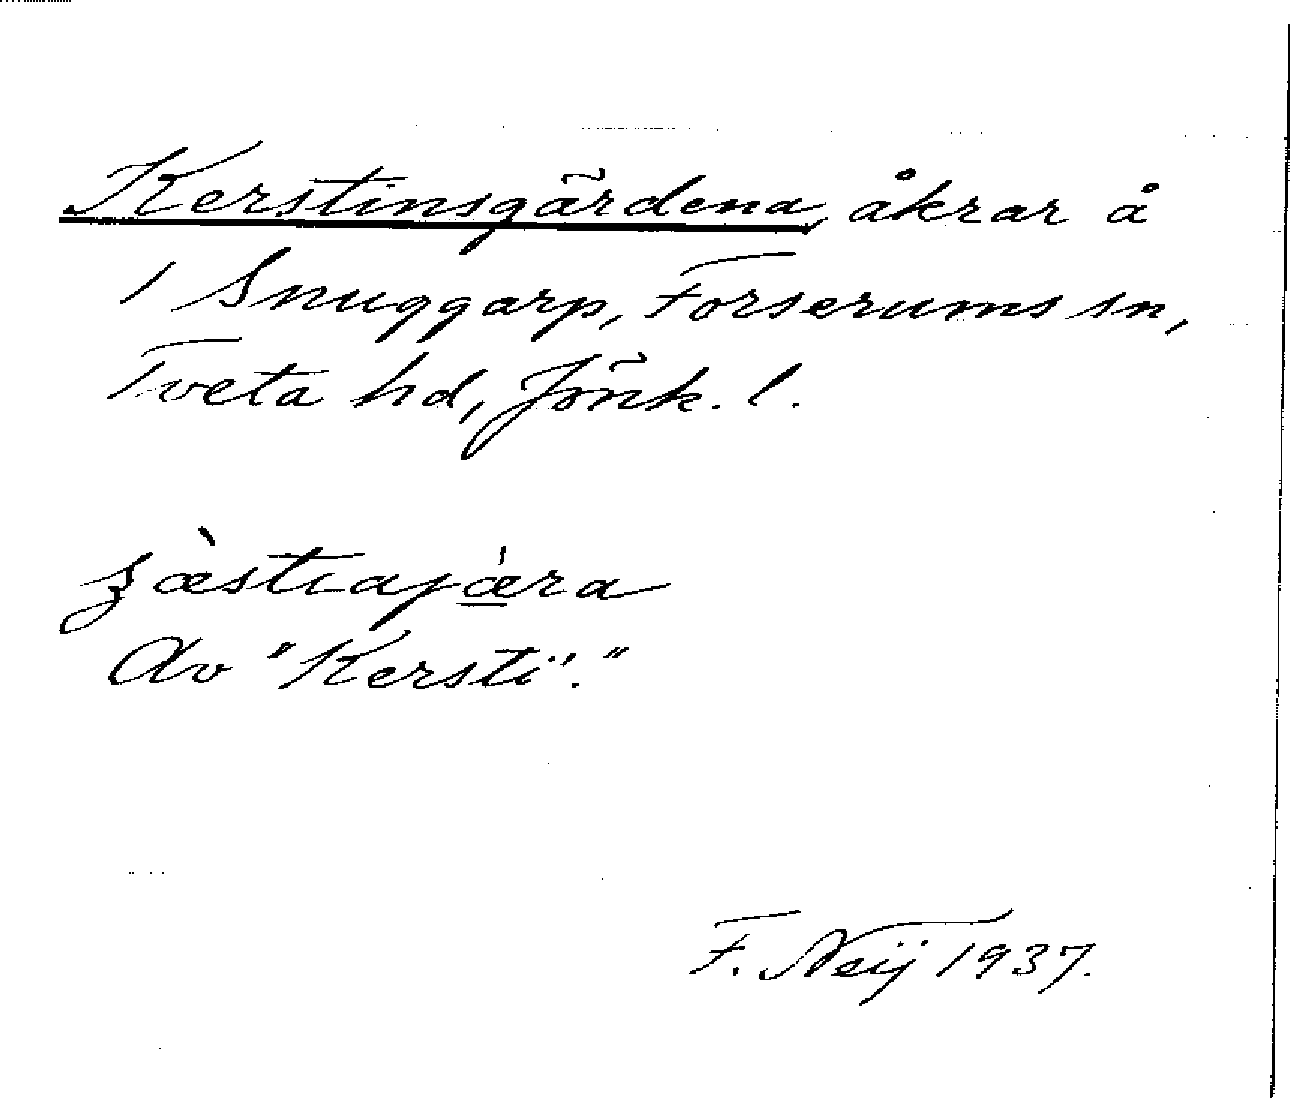 Kerstinsgärdena, åkrar å
1 Snuggarp, Forserums sn,
Tveta hd, Jönk. l.
Av "Kersti"."
F. Neij 1937.